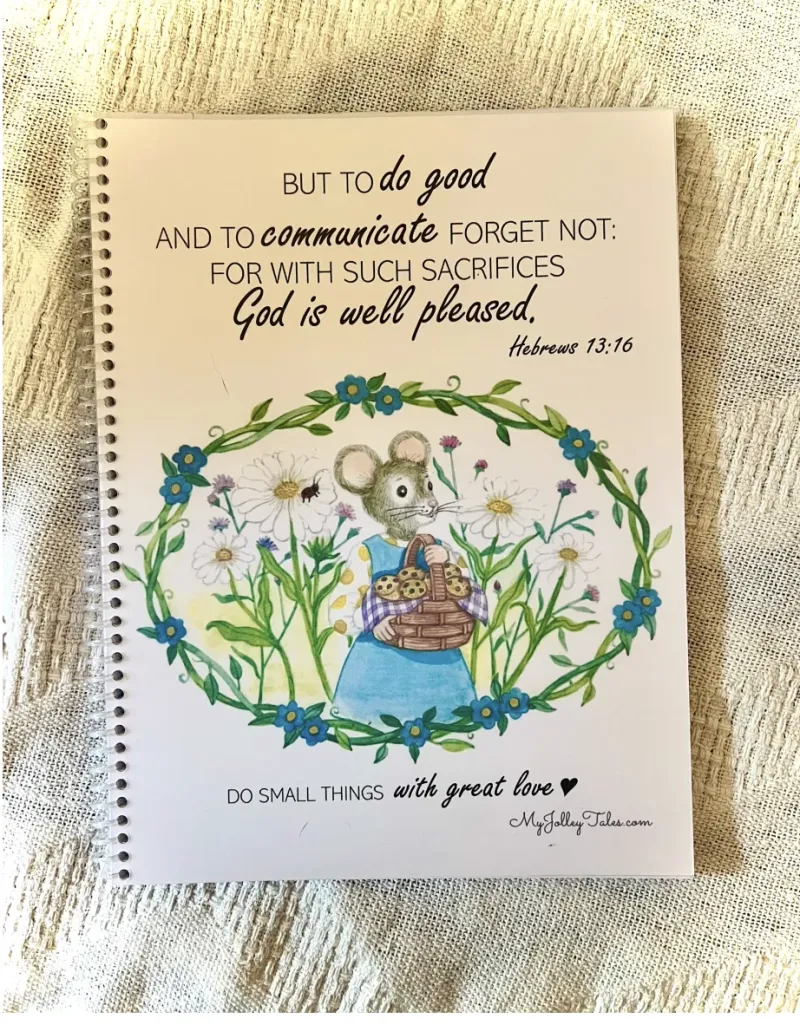 BUT TO do good
AND TO communicate FORGET NOT:
FOR WITH SUCH SACRIFICES
God is well pleased.
Hebrews 13:16
DO SMALL THINGS with great love ♥
MyJolleyTales.com